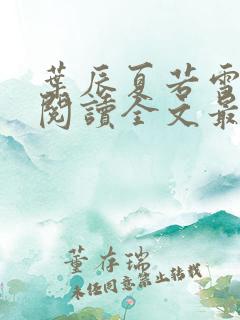 葉辰夏若雪
閱讀全文最
董存瑞
未经同意禁止转载